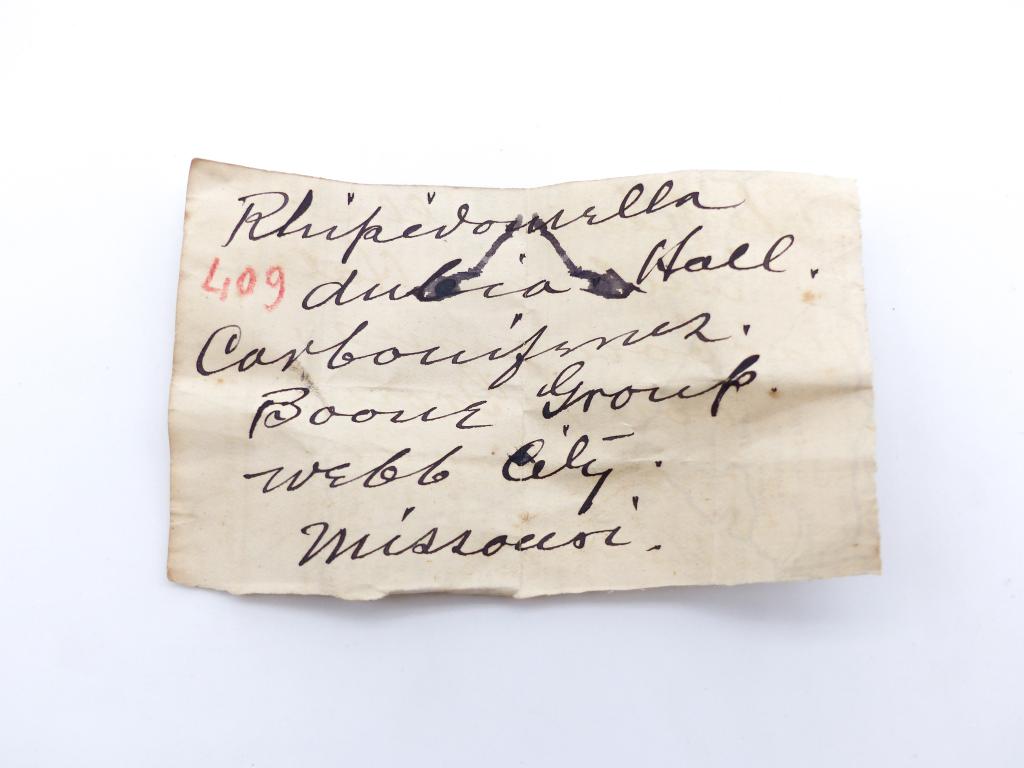 Rhipidomella
409 dubia Hall.
Carboniferous.
Boone Group.
Webb City.
Missouri.